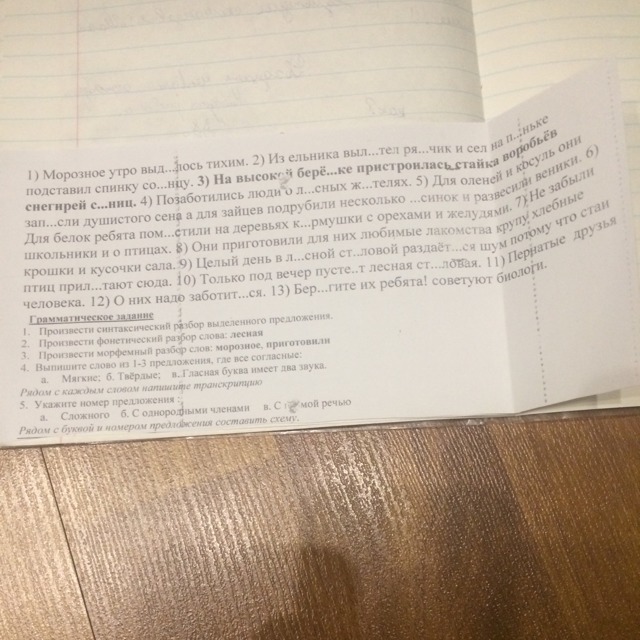 1) Морозное утро выд...лось тихим. 2) Из ельника выл...тел ря...чик и сел на п...ньке
подставил спинку со...нцу. 3) На высокой берё...ке пристроилась стайка воробьёв
снегирей с...ниц. 4) Позаботились люди о л...сных ж...телях. 5) Для оленей и косуль они
зап...сли душистого сена а для зайцев подрубили несколько ...синок и развесили веники. 6)
Для белок ребята пом...стили на деревьях к...рмушки с орехами и желудями. 7) Не забыли
школьники и о птицах. 8) Они приготовили для них любимые лакомства крупу хлебные
крошки и кусочки сала. 9) Целый день в л...сной ст..ловой раздаёт...ся шум потому что стаи
птиц прил...тают сюда. 10) Только под вечер пусте..т лесная ст...ловая. 11) Пернатые друзья
человека. 12) О них надо заботит...ся. 13) Бер...гите их ребята! советуют биологи.
Грамматическое задание
1. Произвести синтаксический разбор выделенного предложения.
2. Произвести фонетический разбор слова: лесная
3. Произвести морфемный разбор слов: морозное, приготовили
4. Выпишите слово из 1-3 предложения, где все согласные:
а. Мягкие; б. Твёрдые; в. Гласная буква имеет два звука.
Рядом с каждым словом напишите транскрипцию
5. Укажите номер предложения :
а. Сложного б. С однородными членами в. С мой речью
Рядом с буквой и номером предложения составить схему.